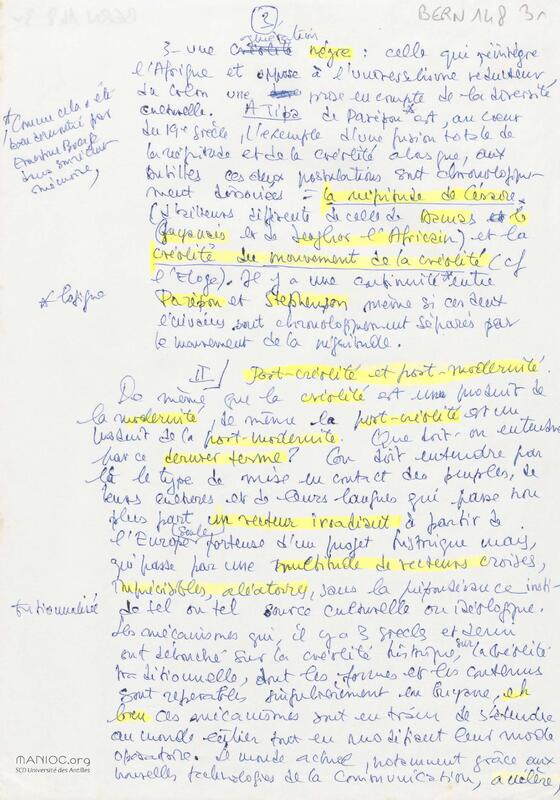 BERN 148 3r
3
génération
3 - une créolité nègre : celle qui réintègre
l'Afrique et oppose à l'universalisme réducteur
du colon une prise en compte de la diversité
culturelle. Atipa de Parépou* est, au cœur
du 19e siècle, l'exemple d'une fusion totale de
la négritude et de la créolité alors que, aux
Antilles ces deux postulations sont chronologique-
ment dissociées = la négritude de Césaire
(d'ailleurs différente de celle de Damas le
Guyanais et de Senghor l'Africain) et la
créolité du mouvement de la créolité (cf
l'Eloge). Il y a une continuité* entre
Parépou et Stephenson même si ces deux
écrivains sont chronologiquement séparés par
le mouvement de la négritude.
* Comme cela a été
bien démontré par
dans son
mémoire,
* logique
II / Post-créolité et post-modernité.
De même que la créolité est un produit de
la modernité, de même la post-créolité est un
produit de la post-modernité. Que doit-on entendre
par ce dernier terme ? On doit entendre par
là le type de mise en contact des peuples, de
leurs cultures et de leurs langues qui passe non
plus par un vecteur irradiant à partir de
l'Europe (seule) porteuse d'un projet historique mais,
qui passe par une multitude de vecteurs croisés,
imprécisibles, aléatoires, sans la prépondérance insti-
tutionnalisée
de tel ou tel source culturelle ou idéologique.
Les mécanismes qui, il y a 3 siècles et demi
ont débouché sur la créolité historique, sur la créolité
traditionnelle, dont les formes et les contenus
sont repérables singulièrement en Guyane, eh
bien ces mécanismes sont en train de s'étendre
au monde entier tout en modifiant leur mode
opératoire. Le monde actuel, notamment grâce aux
nouvelles technologies de la communication, accélère,
MANIOC.org
SCD Université des Antilles